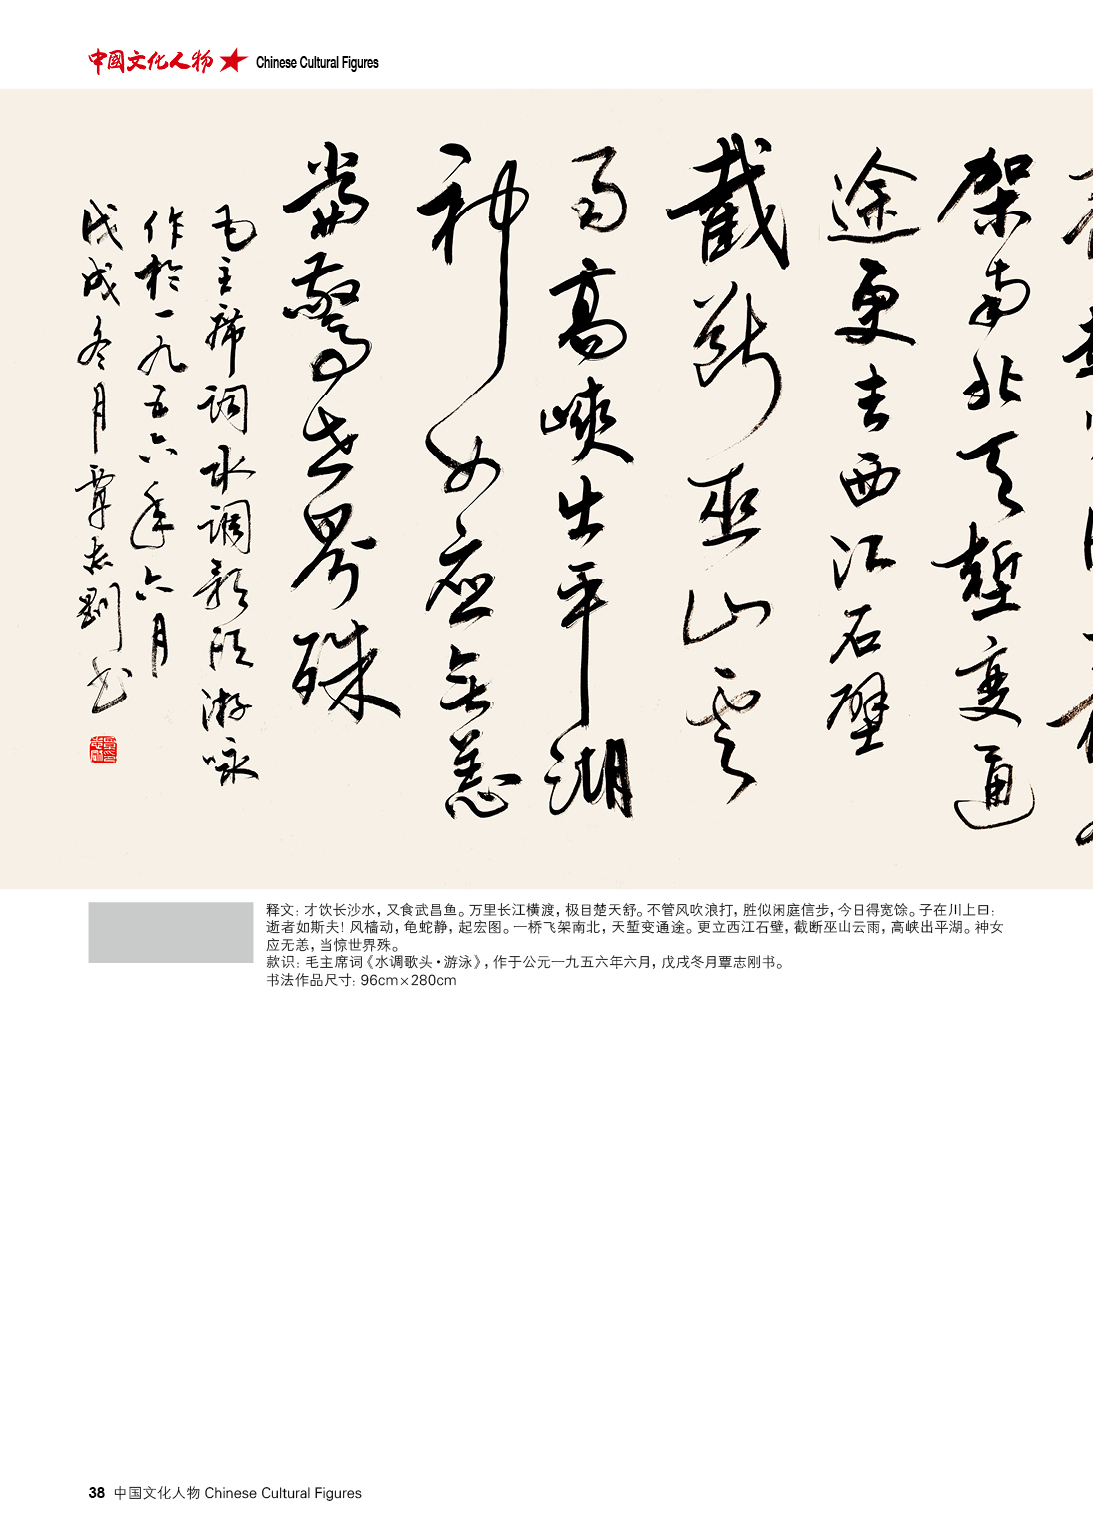 中國文化人物 Chinese Cultural Figures
架南北天塹變通
途更立西江石壁
截斷巫山雲
雨高峽出平湖
神女應無恙
當驚世界殊
毛主席詞水調歌頭游咏
作於一九五六年六月
戊戌冬月覃志剛书
释文：才饮长沙水，又食武昌鱼。万里长江横渡，极目楚天舒。不管风吹浪打，胜似闲庭信步，今日得宽馀。子在川上曰：
逝者如斯夫！风樯动，龟蛇静，起宏图。一桥飞架南北，天堑变通途。更立西江石壁，截断巫山云雨，高峡出平湖。神女
应无恙，当惊世界殊。
款识：毛主席词《水调歌头·游泳》，作于公元一九五六年六月，戊戌冬月覃志刚书。
书法作品尺寸：96cm×280cm
38 中国文化人物 Chinese Cultural Figures